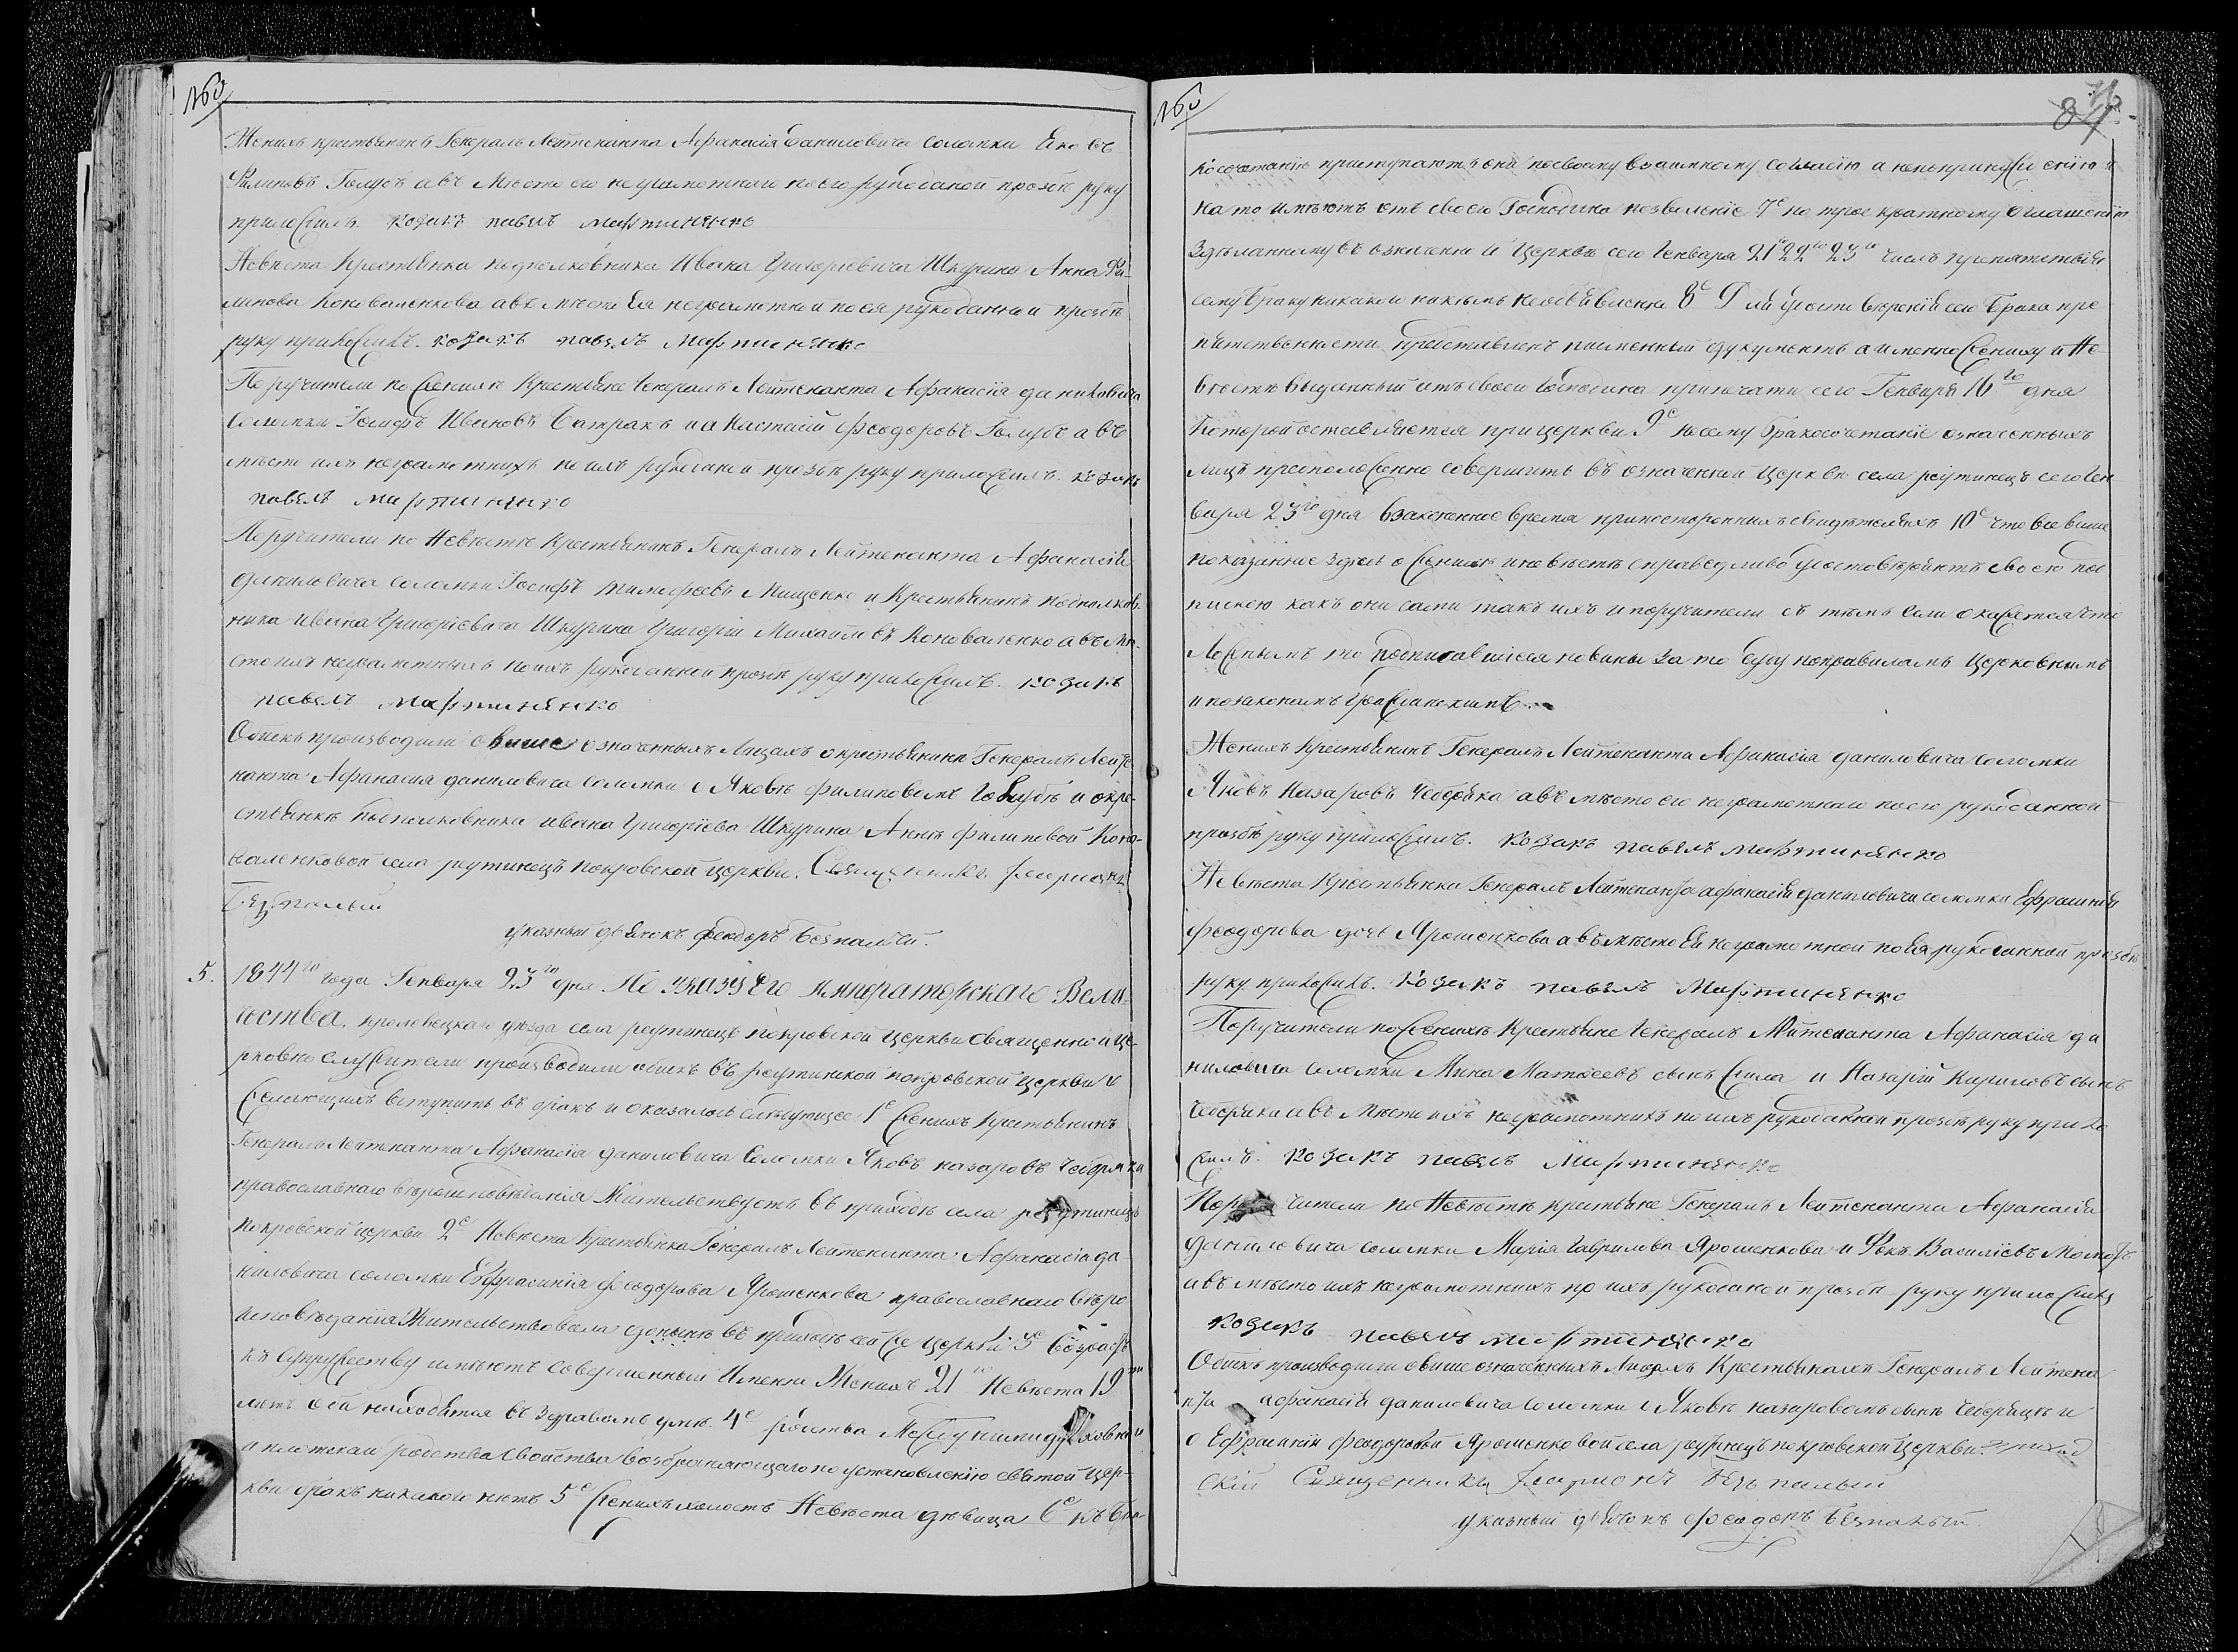 163
Женихъ крестьянинъ Генералъ Лейтенанта Афанасія Даниловича Соломки Яковъ
Филиповъ Голубъ а въ место его неграмотнаго по его рукоданой прозбе руку
приложилъ козакъ павелъ мартиненко
Невеста Крестьянка подполковника Ивана Григорієвича Шкурина Анна Фи-
липова Коноваленкова а въ место Ея неграмотной по ея рукоданной прозбе
руку приложилъ. козакъ павелъ Мартиненко
Поручители по Женихе Крестьяне Генералъ Лейтенанта Афанасія даниловича
Соломки Іосифъ Ивановъ Батракъ и Анастасій Феодоровъ Голубъ а въ
место ихъ неграмотнихъ по ихъ рукоданой прозбе руку приложилъ. козакъ
павелъ мартиненко
Поручители по Невесте Крестьянинъ Генералъ Лейтенанта Афанасія
даниловича соломки Іосифъ тимофеевъ Мищенко и Крестьянинъ подполков-
ника Ивана Григорієвича Шкурина Григорій Михайловъ Коноваленко а въ ме-
сто ихъ неграмотныхъ по ихъ рукоданной прозбе руку приложилъ. козакъ
павелъ мартиненко
Обискъ производили о више означенныхъ Лицахъ о крестьянине Генералъ Лейте
нанта Афанасія даниловича Соломки о Якове Филиповомъ Голубе и о кре-
стьянке подполковника ивана Григорієва Шкурина Анне Филиповой Коно-
валенковой села реутинецъ покровской церкви. Священникъ Иларионъ
Безпалый
указный дьячокъ феодоръ Безпалый.
5. 1844го года Генваря 23го дня По указу Его Императорскаго Вели-
чества, кролевецкаго уезда села реутинецъ покровской церкви священно и це-
рковно служители производили обискъ въ реутинской покровской церкви о
Желающихъ вступить въ бракъ и оказалось следующее 1е Женихъ Крестьянинъ
Генералъ Лейтенанта Афанасія даниловича Соломки Яковъ назаровъ Чебряка
православнаго вероисповеданія Жительствуетъ въ приходе села реутинецъ
покровской церкви 2е Невеста Крестьянка Генералъ Лейтенанта Афанасія да
ниловича соломки Ефросинія феодорова Ярошенкова православнаго веро
исповеданія Жительствовала доныне въ приходе сей же церкви 3е возрастъ
къ супружеству имеютъ совершенный Именно Женихъ 21го Невеста 19ти
летъ оба находятся въ здравомъ уме. 4е родства Между ними духовнаго
и плотскаго родства свойства возбраняющаго по установленію святой цер-
кви бракъ никакого нетъ 5е Женихъ холостъ Невеста девица 6е къ бра-
163
84
косочетанію приступаютъ они посвоему взаимному согласію а непопринужденію и
на то имеютъ отъ своего Господина позволеніе 7е по трое кратному оглашенію
зделанному въ означенной церкве сего Генваря 21го 22го 23го числъ препятствія
сему браку никакого никемъ необъявлено 8е Для удостоверенія сего брака пре
пятственности представленъ писменный документъ а именно Жениху и Не-
весте выданный отъ своего Господина припечати сего Генваря 16го дня
который оставляется при церкви 9е посему бракосочетаніе означенныхъ
лицъ предположенно совершить въ означенной церкве села реутинецъ сего Ген
варя 23го дня взаконенное время припостороннихъ свидетеляхъ 10е что все више
показанное здесь о Женихе и невесте справедливо удостоверяютъ своею под
пискою какъ они сами такъ ихъ и поручители съ темъ Если окажется что
ложнымъ то подписавшіеся повинны за то суду по правиламъ церковнымъ
и позаконамъ Гражданскимъ
Женихъ Крестьянинъ Генералъ Лейтенанта Афанасія даниловича соломки
Яковъ Назаровъ Чебряка а въ место его неграмотнаго по его рукоданной
прозбе руку приложилъ. козакъ павелъ мартиненко
Невеста Крестьянка Генералъ Лейтенанта афанасія даниловича соломки Ефросинія
феодорова дочь Ярошенкова а въ место Ея неграмотной по Ея рукоданной прозбе
руку приложилъ. козакъ павелъ Мартиненко
Поручители по Женихе Крестьяне Генералъ Лейтенанта Афанасія да
ниловича соломки Мина Матвеевъ сынъ Жила и Назарій Кириловъ сынъ
Чебряка а въ место ихъ неграмотнихъ по ихъ рукоданной прозбе руку прило
жилъ. козакъ павелъ Мартиненко
Поручители по Невесте крестьяне Генералъ Лейтенанта Афанасія
даниловича соломки Марія Гаврилова Ярошенкова и Фока Василіевъ
а въ место ихъ неграмотнихъ по ихъ рукоданой прозбе руку приложилъ
козакъ павелъ мартиненко
Обискъ производили о више означенныхъ Лицахъ Крестьянахъ Генералъ Лейтена
нта афанасія даниловича соломки о Якове назаровомъ сыне Чебряце и
о Ефросиніи Феодоровой Ярошенковой села реутинецъ покровской церкви. приход
скій Священникъ Иларионъ Безпалый
указный дьячокъ феодоръ Безпалый.